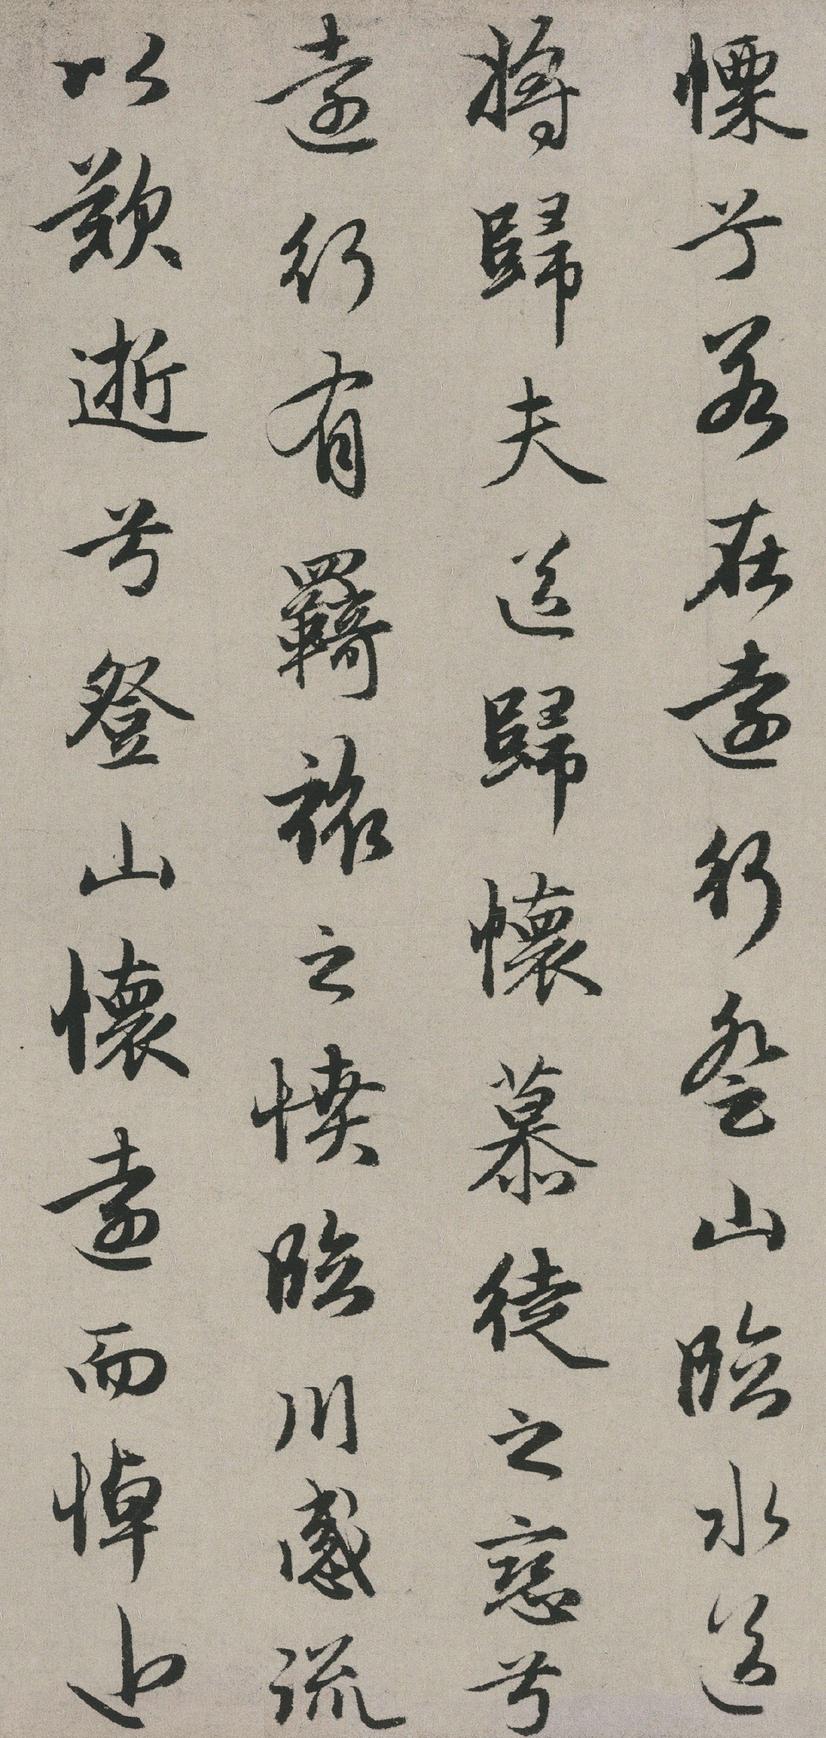 慄兮若在遠行登山臨水送
將歸夫送歸懷慕徒之戀兮
遠行有羇旅之憤臨川感流
以歎逝兮登山懷遠而悼近